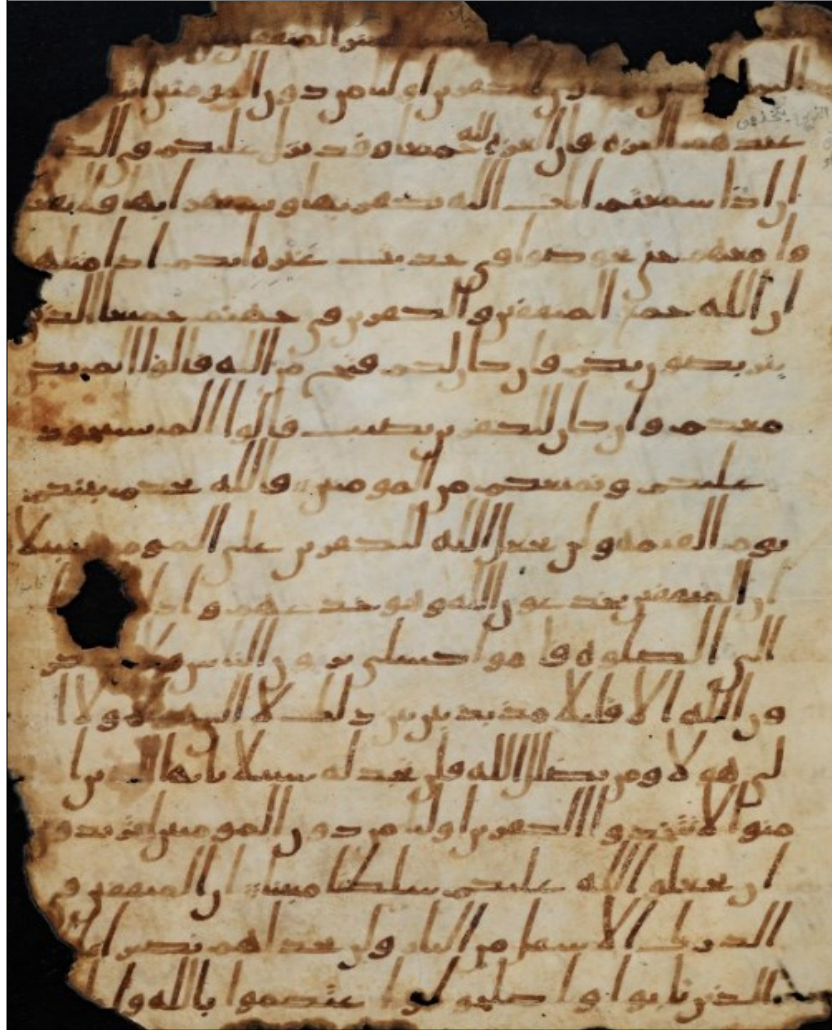 المنفقين
اليما الذين يتخذون الكفرين اوليا من دون المومنين
عندهم العزه فان العزه لله جميعا وقد نزل عليكم في الكتب
ان اذا سمعتم ايت الله يكفر بها ويستهزا بها فلا تقعد
وا معهم حتى يخوضوا في حديث غيره انكم اذا مثلهم
ان الله جمع المنفقين والكفرين في جهنم جميعا الذين
يتربصون بكم فان كان لكم فتح من الله قالوا الم نكن
معكم وان كان للكفرين نصيب قالوا الم نستحوذ
عليكم ونمنعكم من المومنين فالله يحكم بينكم
يوم القيمه ولن يجعل الله للكفرين على المومنين سبيلا
ان المنفقين يخدعون الله وهو خدعهم واذا
الى الصلوه قاموا كسلى يرون الناس ولا يذكر
ون الله الا قليلا مذبذبين بين ذلك لا الى هولا ولا ا
لى هولا ومن يضلل الله فلن تجد له سبيلا يايها الذين ا
منوا لا تتخذوا الكفرين اوليا من دون المومنين اتريدون
ان تجعلوا لله عليكم سلطنا مبينا ان المنفقين في
الدرك الاسفل من النار ولن تجد لهم نصيرا الا
الذين تابوا واصلحوا واعتصموا بالله واخلصوا